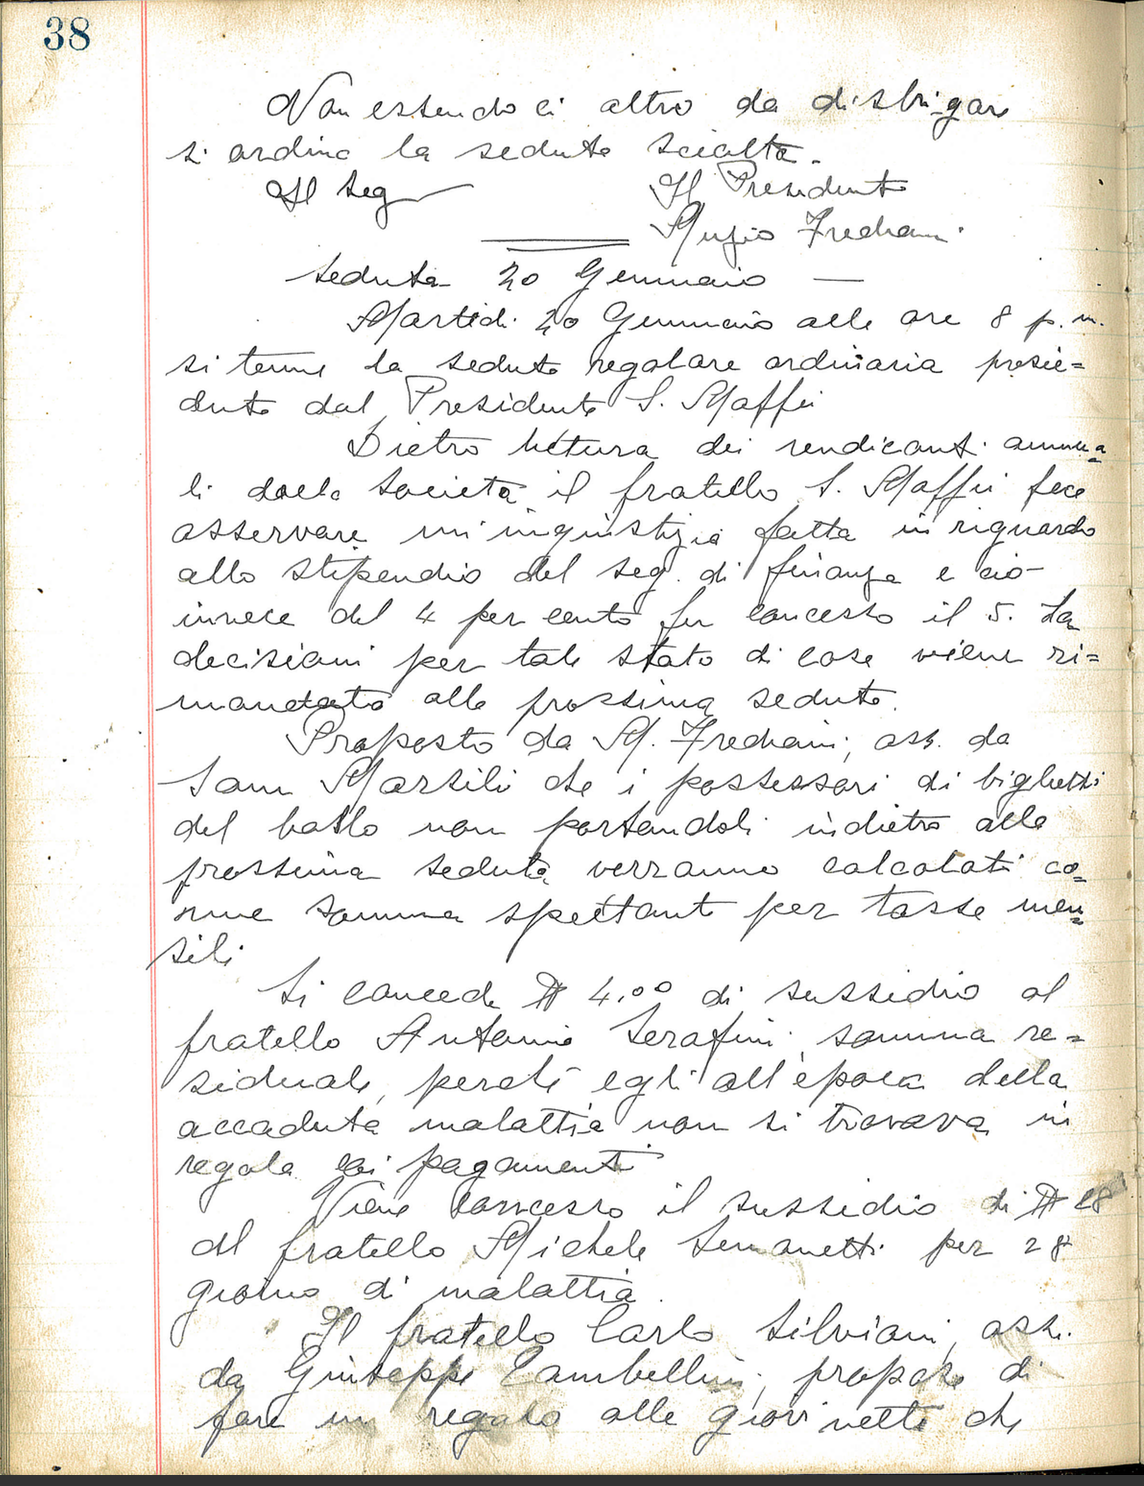 38
Non essendoci altro da disbrigare
si ordina la seduta sciolta.
Il Seg Il Presidente
Muzio Frediani
Seduta 20 Gennaio —
Martedi 20 Gennaio alle ore 8 p.m.
si tenne la seduta regolare ordinaria presie=
duta dal Presidente S. Maffei
Dietro lettura dei rendiconti annua=
li della Società il fratello S. Maffei fece
osservare un'ingiustizia fatta in riguardo
allo stipendio del seg. di finanza e ciò
invece del 4 per cento fu concesso il 5. La
decisioni per tale stato di cose viene ri=
mandata alla prossima seduta.
Proposto da M. Frediani, ass. da
Sam Marsili che i possessori di biglietti
del ballo non portandoli indietro alla
prossima seduta verranno calcolati co=
me somma spettante per tasse men=
sili
Si concede $ 4.00 di sussidio al
fratello Antonio Serafini somma re=
siduale, perchè egli all'epoca della
accaduta malattia non si trovava in
regola coi pagamenti
Viene concesso il sussidio di $ 28
al fratello Michele per 28
giorno di malattia.
Il fratello Carlo Silviani, ass.
da Giuseppe Zambellini, propose di
fare un regalo alle giovinette che